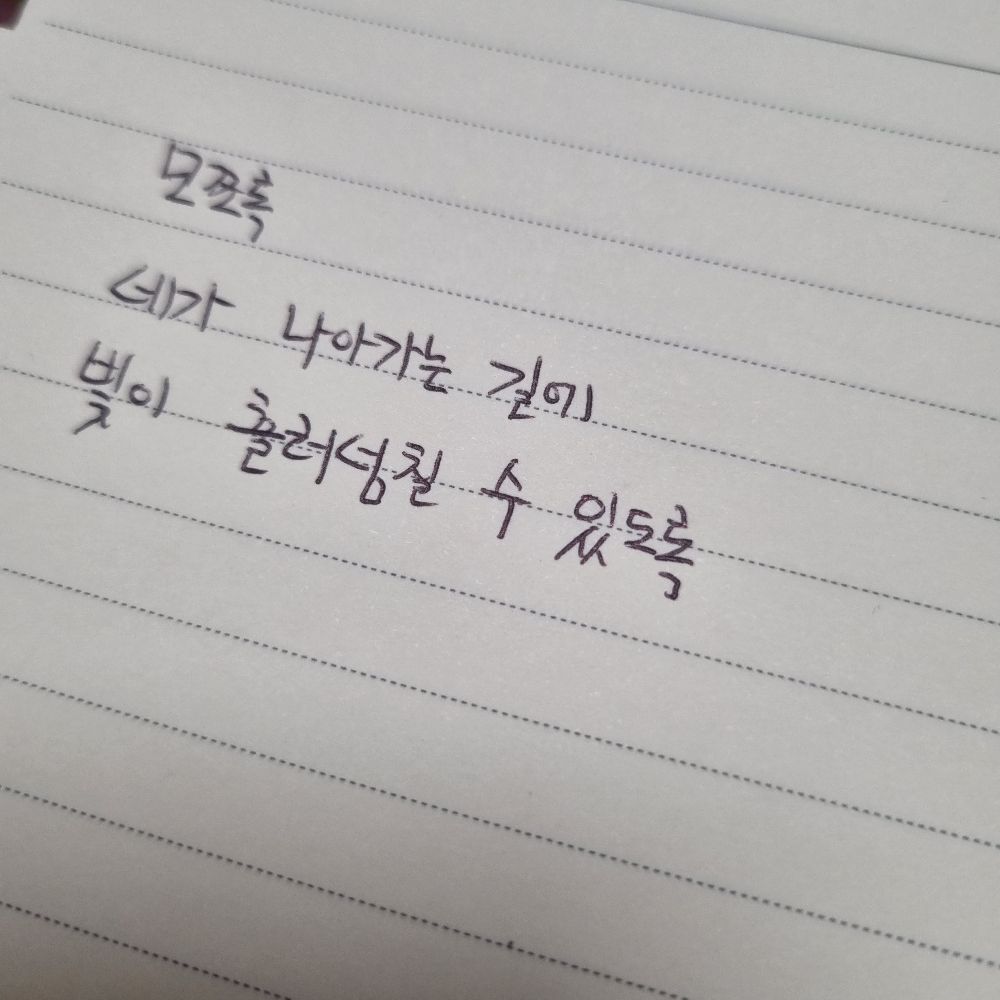 모쪼록
네가 나아가는 길에
빛이 흘러넘칠 수 있도록